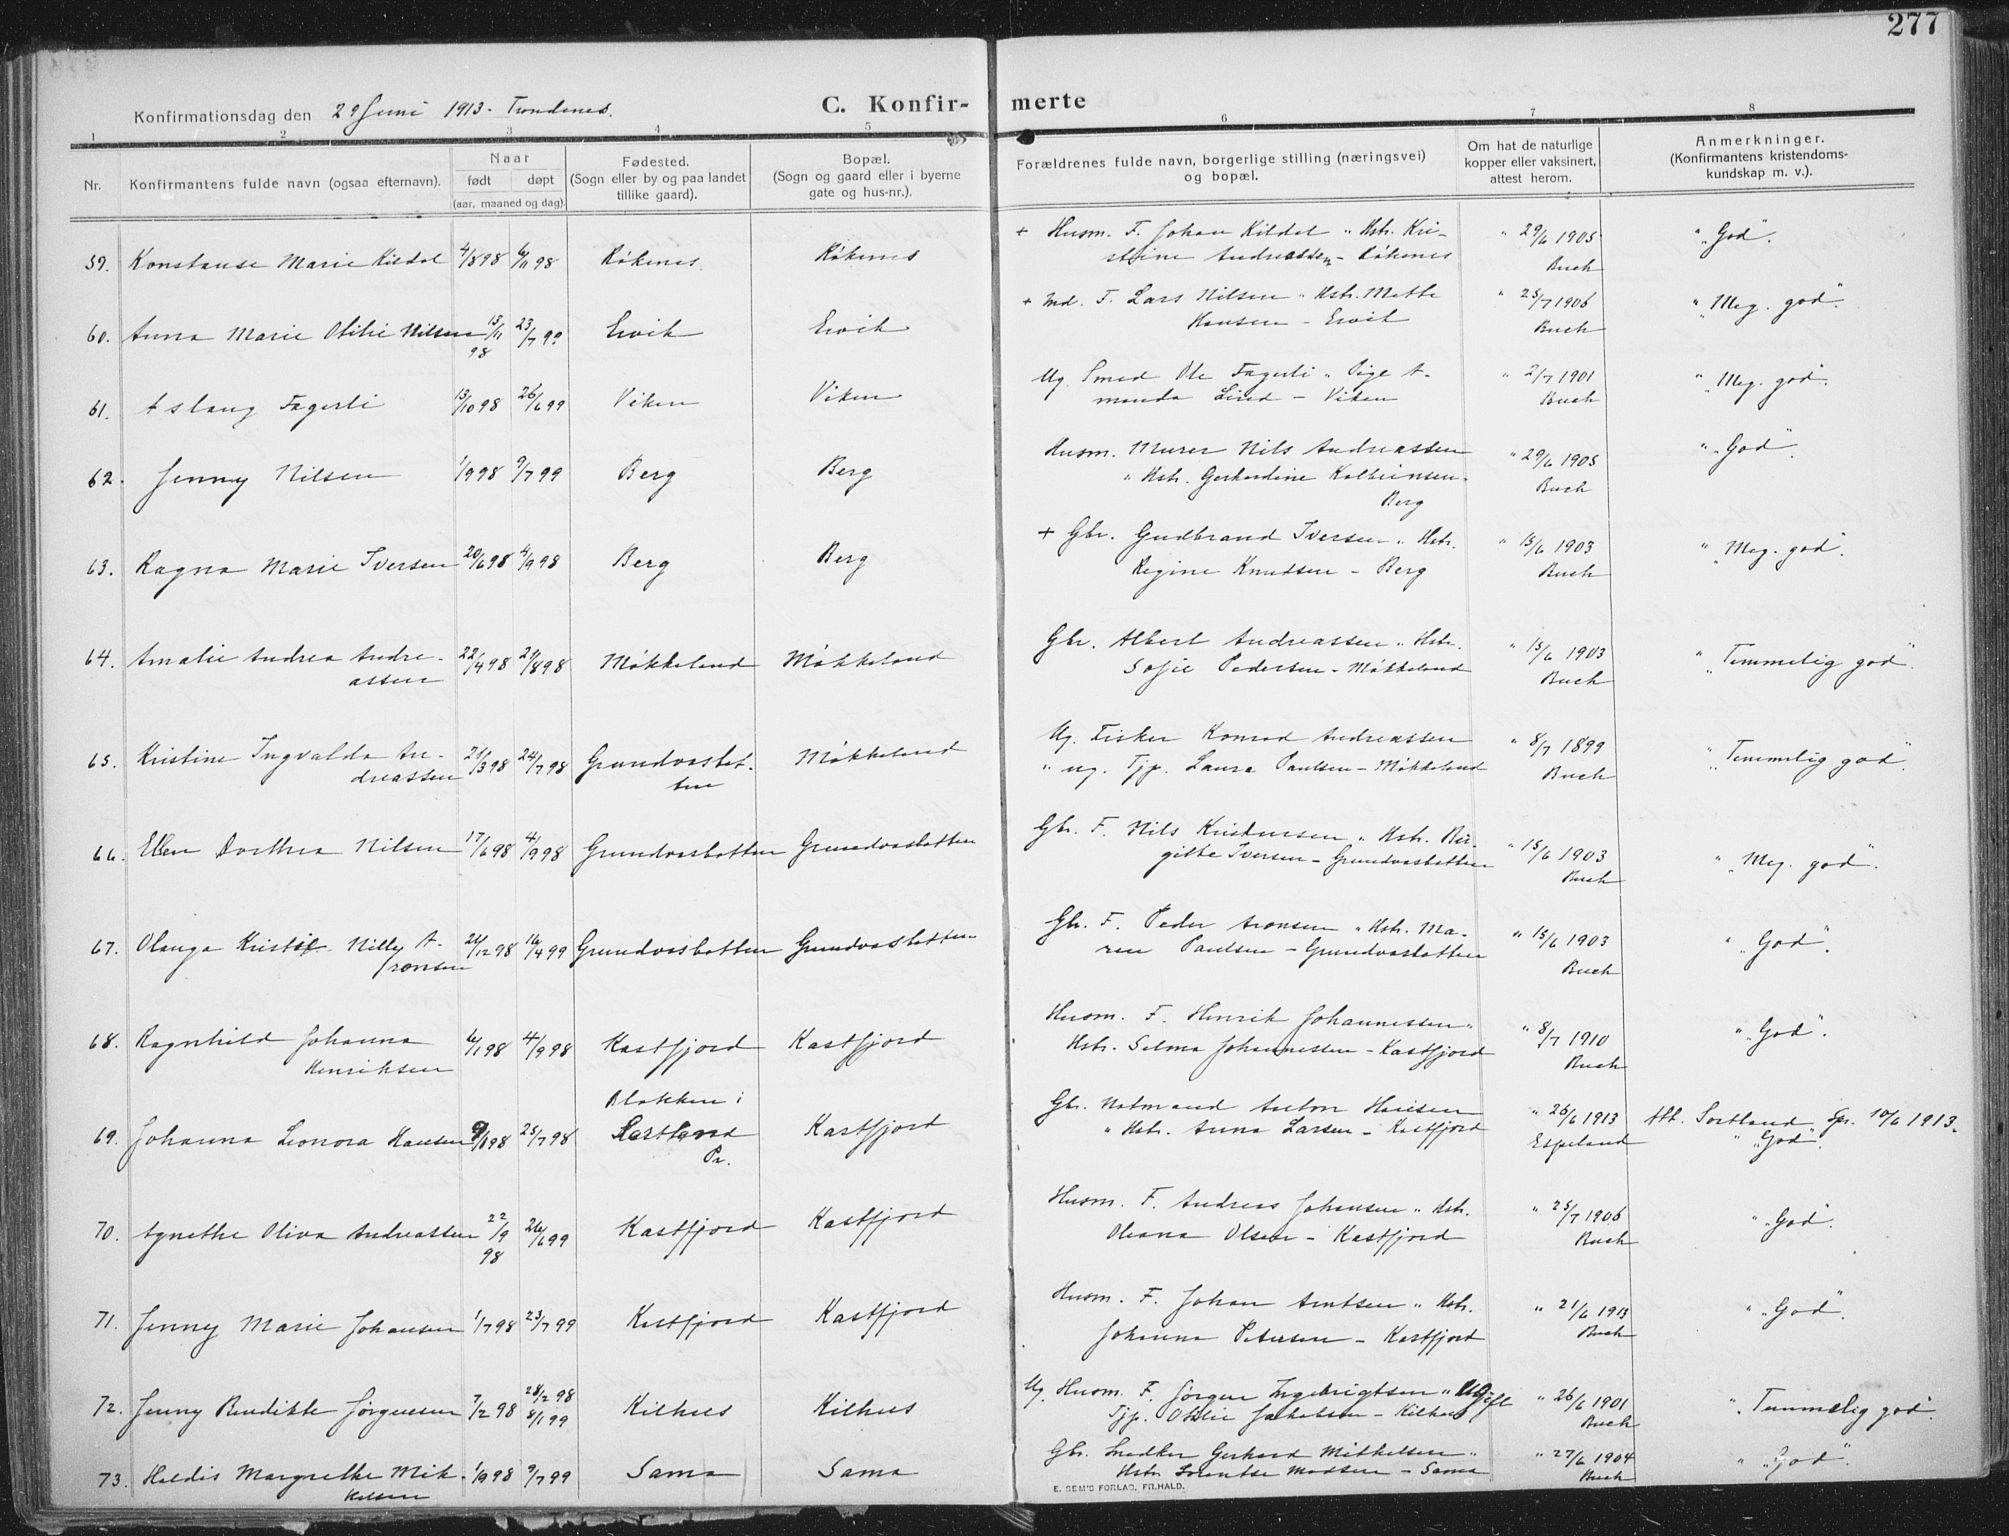 277
Konfirmationsdag den 29 Juni 1913 - Trondenes.
C. Konfir- merte
1 2 3 4 5 6 7 8
Nr.
Konfirmantens fulde navn (ogsaa efternavn).
Naar
født døpt
(aar, maaned og dag).
Fødested.
(Sogn eller by og paa landet
tillike gaard).
Bopæl.
(Sogn og gaard eller i byerne
gate og hus-nr.).
Forældrenes fulde navn, borgerlige stilling (næringsvei)
og bopæl.
Om hat de naturlige
kopper eller vaksinert,
attest herom.
Anmerkninger.
(Konfirmantens kristendoms-
kundskap m. v.).
+ Husm. F. Johan Kildal " Hstr. Kri- " 29/6 1905 " "God".
59. Konstanse Marie Kildal 4/8 98 6/11 98 Røkenes Røkenes
stine Andreassen - Røkenes Buch
+ Ind. F. Lars Nilsen " Hstr. Mette " 25/7 1906 " "Meg. god".
60. Anna Marie Otilie Nilsen 13/11 98 23/7 99 Ervik Ervik
Hansen - Ervik Buch
Ug. Smed Ole Fagerli " Pige A- " 2/7 1901 " "Meg. god".
61. Aslaug Fagerli 13/10 98 26/6 99 Viken Viken
manda Lind - Viken Buch
Husm. Murer Nils Andreassen " 29/6 1905 " "God".
62. Jenny Nilsen 1/9 98 9/7 99 Berg Berg
" Hstr. Gerhardine Kolbeinsen - Buch
Berg
+ Gbr. Gudbrand Iversen " Hstr. " 15/6 1903 " "Meg. god".
63. Ragna Marie Iversen 20/6 98 4/9 98 Berg Berg
Regine Knudsen - Berg Buch
Gbr. Albert Andreassen " Hstr. " 15/6 1903 " "Temmelig god".
64. Amalie Andrea Andre- 22/4 98 29/8 98 Møkkeland Møkkeland
assen
Sofie Pedersen - Møkkeland Buch
Ug. Fisker Konrad Andreassen " 8/7 1899 " "Temmelig god".
65. Kristine Ingvalda An- 21/3 98 24/7 98 Grundvasbot- Møkkeland
dreassen ten
" ug. Tjp. Laura Paulsen - Møkkeland Buch
Gbr. F. Nils Kristensen " Hstr. Bir- " 15/6 1903 " "Meg. god".
66. Ellen Dorthea Nilsen 17/6 98 4/9 98 Grundvasbotten Grundvasbotten
gitte Iversen - Grundvasbotten Buch
Gbr. F. Peder Aronsen " Hstr. Ma- " 15/6 1903 " "God".
67. Olauga Nilly A- 21/12 98 16/4 99 Grundvasbotten Grundvasbotten
ronsen
ren Paulsen - Grundvasbotten Buch
Husm. F. Henrik Johannessen " " 8/7 1910 " "God".
68. Ragnhild Johanna 6/1 98 4/9 98 Kastfjord Kastfjord
Henriksen
Hstr. Selma Johannessen - Kastfjord Buch
Blokken i
Gbr. Notmand Anton Hansen " 26/6 1913 Att. Sortland Spr. 10/6 1913.
69. Johanna Leonora Hansen 9/1 98 25/7 98 Sortland Kastfjord
Pr.
" Hstr. Anna Larsen - Kastfjord Espeland " "God".
Husm. F. Andreas Johansen " Hstr. " 25/7 1906 " "God".
70. Agnethe Oliva Andreassen 22/9 98 26/6 99 Kastfjord Kastfjord
Oleana Olsen - Kastfjord Buch
Husm. F. Johan Arntsen " Hstr. " 21/6 1913 " "God".
71. Jenny Marie Johansen 1/7 98 23/7 99 Kastfjord Kastfjord
Johanna Petersen - Kastfjord Buch
Ug. Husm. F. Jørgen Ingebrigtsen " Ugift " 26/6 1901 " "Temmelig god".
72. Jenny Bendikte Jørgensen 7/2 98 28/2 98 8/1 99 Kilhus Kilhus
Tjp. Otilie Jakobsen - Kilhus Buch
Gbr. Snedker Gerhard Mikkelsen " " 27/6 1904 " "God".
73. Haldis Margrethe Mik- 1/9 98 9/7 99 Sama Sama
kelsen
Hstr. Lorentse Madsen - Sama Buch
E. SEM'S FORLAG, FR.HALD.